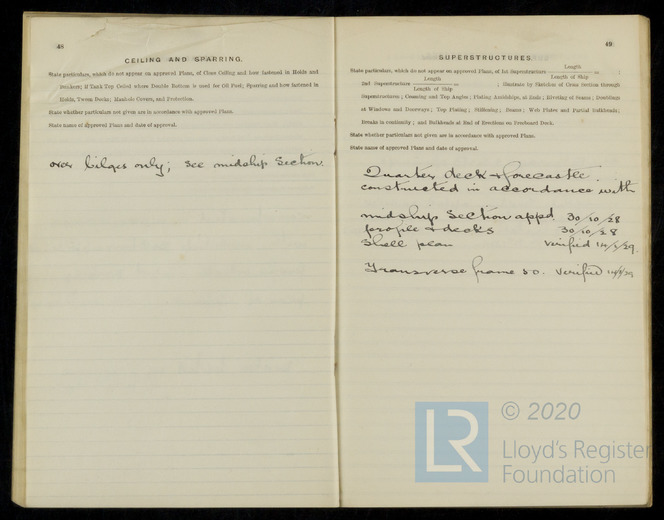 48
CEILING AND SPARRING.
State particulars, which do not appear on approved Plans, of Close Ceiling and how fastened in Holds and
Bunkers; if Tank Top Ceiled where Double Bottom is used for Oil Fuel; Sparring and how fastened in
Holds, Tween Decks; Manhole Covers, and Protection.
State whether particulars not given are in accordance with approved Plans.
State name of approved Plans and date of approval.
over bilges only; see midship Section.
49
SUPERSTRUCTURES.
State particulars, which do not appear on approved Plans, of 1st Superstructure Length / Length of Ship = ;
2nd Superstructure Length / Length of Ship = ; illustrate by Sketches of Cross Section through
Superstructures; Coaming and Top Angles; Plating Amidships, at Ends; Riveting of Seams; Doublings
at Windows and Doorways; Top Plating; Stiffening; Beams; Web Plates and Partial Bulkheads;
Breaks in continuity; and Bulkheads at End of Erections on Freeboard Deck.
State whether particulars not given are in accordance with approved Plans.
State name of approved Plans and date of approval.
Quarter deck & forecastle
constructed in accordance with
midship Section appd 30/10/28
profile & decks 30/10/28
Shell plan Verified 14/5/29.
Transverse frame 50. Verified 14/5/29
LR
© 2020
Lloyd's Register
Foundation